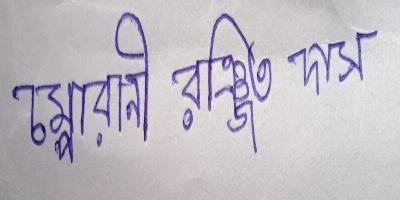 চম্পারানী রঞ্জিত দাস